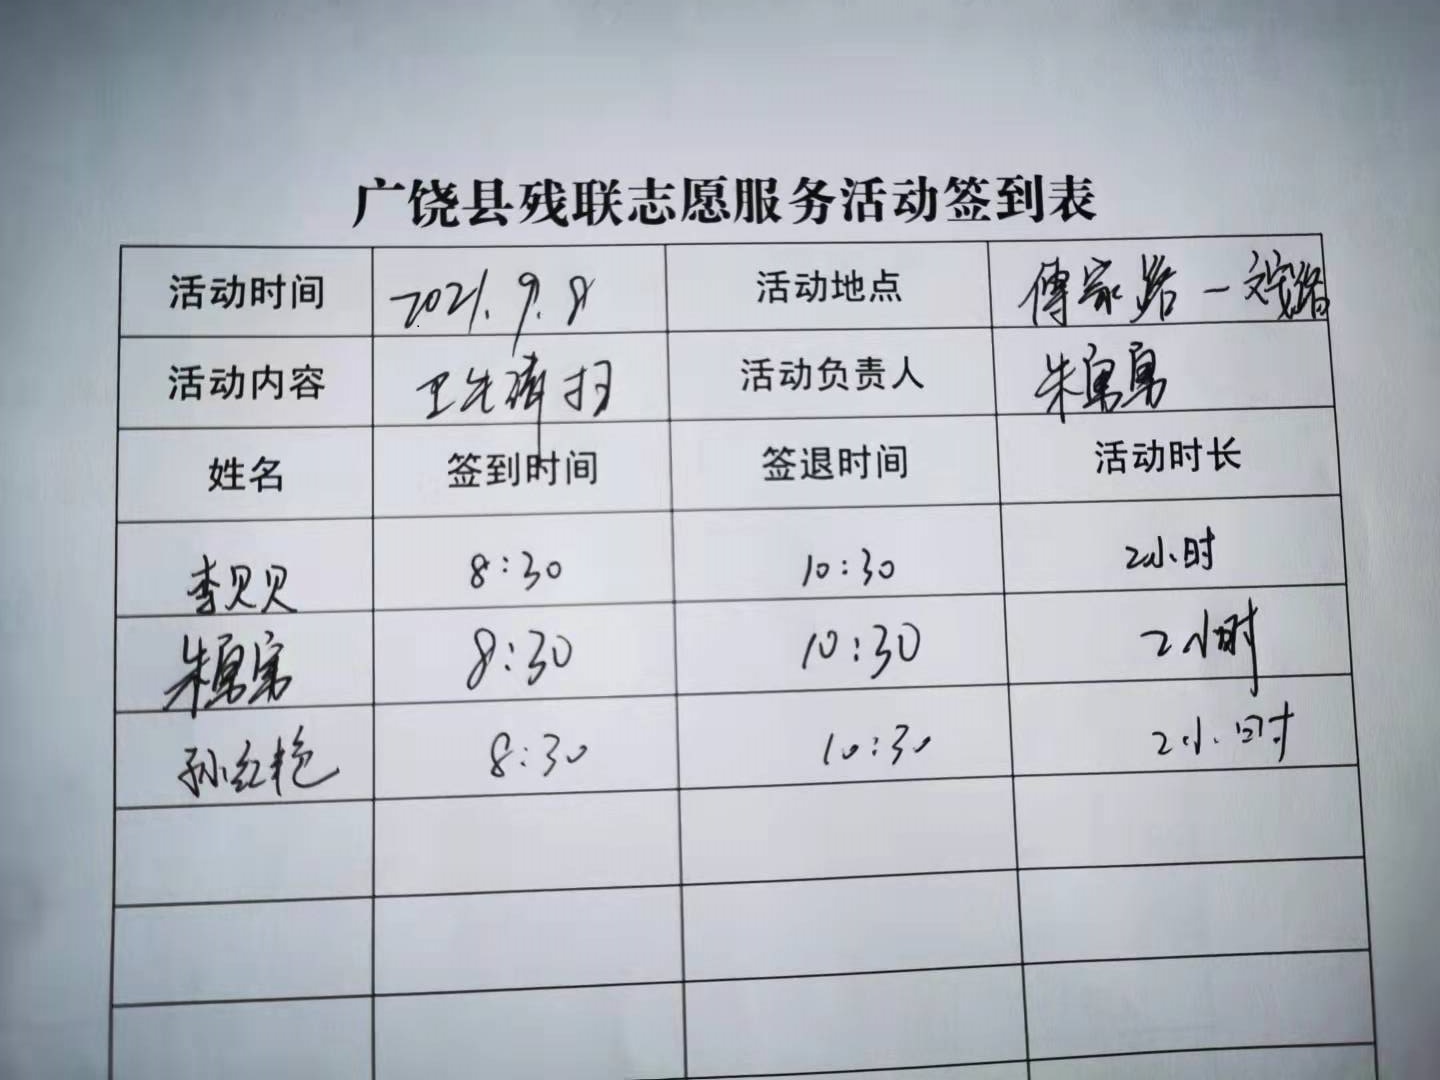 广饶县残联志愿服务活动签到表
活动时间 2021.9.8 活动地点 傅家路一
活动内容 卫生清扫 活动负责人 朱勇勇
姓名 签到时间 签退时间 活动时长
李贝贝 8:30 10:30 2小时
朱勇勇 8:30 10:30 2小时
孙红艳 8:30 10:30 2小时